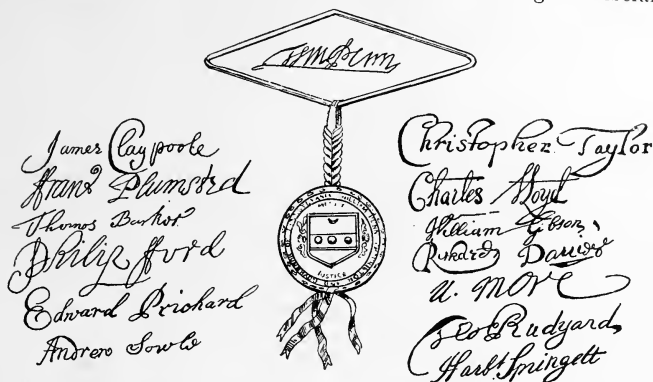 Wm Penn
James Claypoole
Franc Plumsted
Thomas Barker
Philip Ford
Edward Prichard
Andrew Sowle
MERCY
JUSTICE
Christopher Taylor
Charles Lloyd
William Gibson
Richard Davies
N. More
Geo Rudyard
Harbt Springett